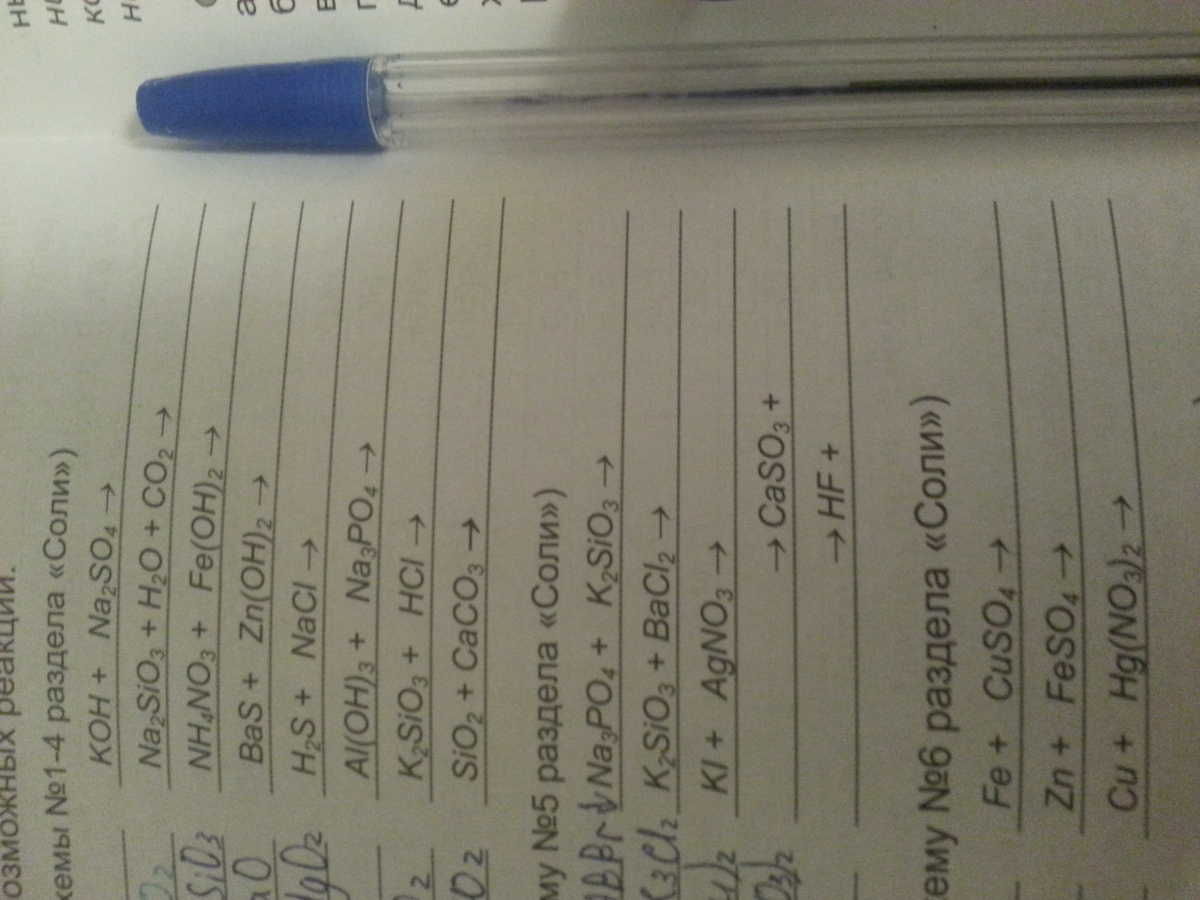 озможных реакций.
хемы №1–4 раздела «Соли»)
KOH + Na₂SO₄ →
Na₂SiO₃ + H₂O + CO₂ →
NH₄NO₃ + Fe(OH)₂ →
BaS + Zn(OH)₂ →
H₂S + NaCl →
Al(OH)₃ + Na₃PO₄ →
K₂SiO₃ + HCl →
SiO₂ + CaCO₃ →
му №5 раздела «Соли»)
Na₃PO₄ + K₂SiO₃ →
K₂SiO₃ + BaCl₂ →
KI + AgNO₃ →
→ CaSO₃ +
→ HF +
хему №6 раздела «Соли»)
Fe + CuSO₄ →
Zn + FeSO₄ →
Cu + Hg(NO₃)₂ →